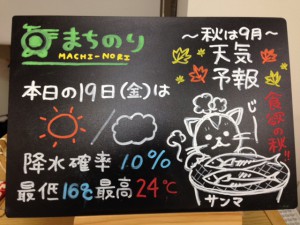 まちのり
MACHI-NORI
本日の19日(金)は
降水確率 10%
最低16℃最高24℃
〜秋は9月〜
天気
予報
食欲の秋!!
サンマ